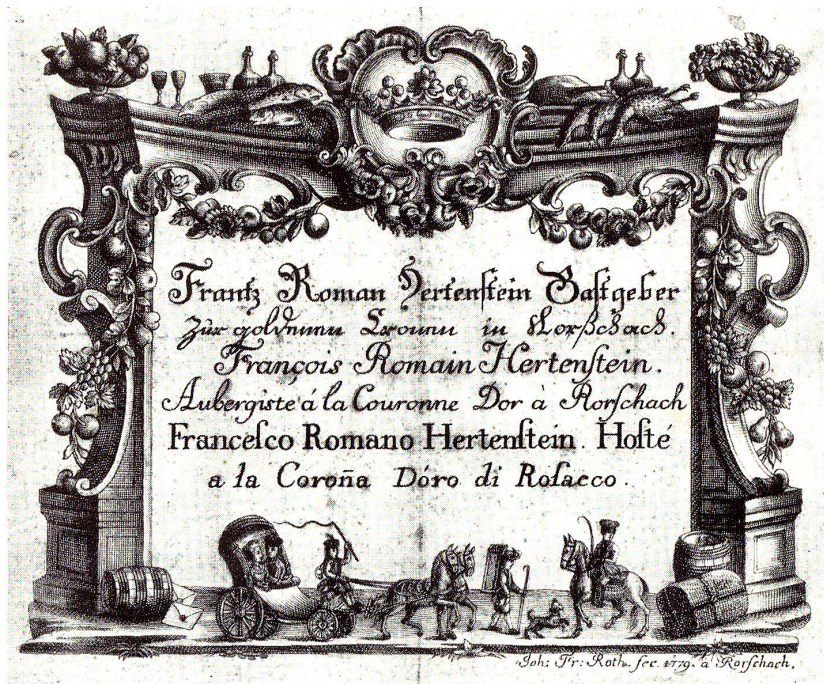 Frantz Roman Hertenſtein Gaſtgeber
Zur goldenen Cronen in Rorſchach.
François Romain Hertenſtein.
Aubergiste á la Couronne Dor à Rorſchach
Franceſco Romano Hertenſtein. Hoſté
a la Coroña Dóro di Roſacco.
Joh: Fr: Roth. fec. 1779. à Rorſchach.